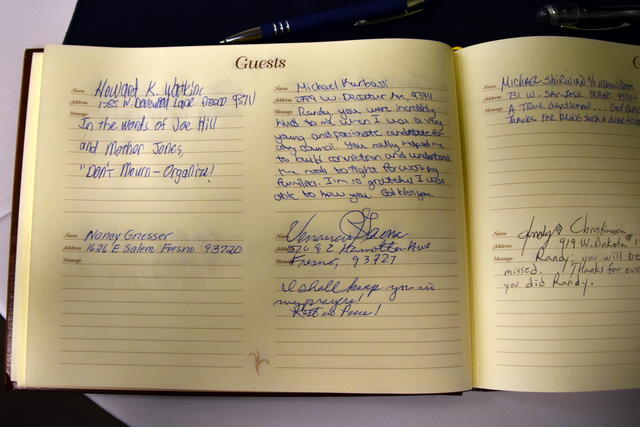 Guests
Name Howard K. Watkins
Address 1755 W Lane Fresno 93711
Message
In the words of Joe Hill
and Mother Jones,
"Don't Mourn - Organize!
Name Nancy Gresser
Address 1626 E Salem Fresno 93720
Message
Name Michael
Address W. Decatur Ave, 93711
Message Randy you were incredibly
kind to me when I was a very
young and passionate candidate for
city council. You really helped me
to build conviction and understand
the need to fight for working
families. I'm so grateful I was
able to know you God bless you.
Name
Address E Hamilton Ave
Message Fresno, 93727
I shall keep you in
my prayers!
Rest in Peace!
G
Name Michael Shirinian
Address 731 W. San Jose
Message A True Gentleman... God
Thanks for being such a dear
Name Christiansen
Address 919 W. Dakota #
Message Randy, you will be
missed. Thanks for
you did Randy.